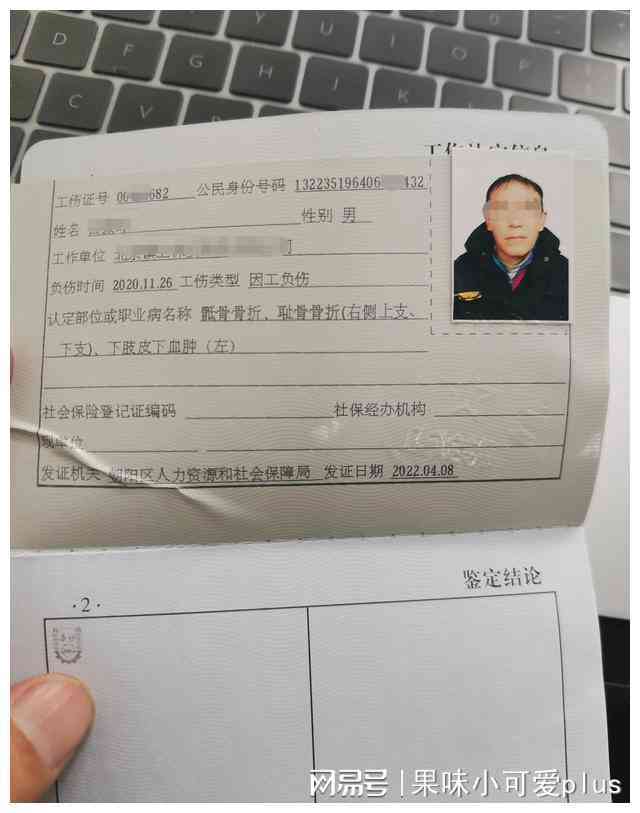 D F G H U I O P J K L C V
工伤认定信息
工伤证号 00 682 公民身份号码 132235196406 432
姓名 性别 男
工作单位
负伤时间 2020.11.26 工伤类型 因工负伤
认定部位或职业病名称 骶骨骨折、耻骨骨折(右侧上支、
下支)、下肢皮下血肿（左）
社会保险登记证编码 社保经办机构
现单位
发证机关 朝阳区人力资源和社会保障局 发证日期 2022.04.08
鉴定结论
·2·
网易号 | 果味小可爱plus